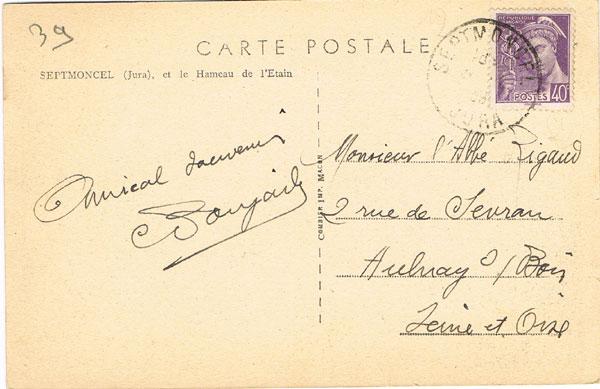 39
CARTE POSTALE
SEPTMONCEL (Jura), et le Hameau de l'Etain
REPUBLIQUE FRANÇAISE
POSTES 40c
SEPTMONCEL
JURA
Amical souvenir
COMBIER IMP. MACON
Monsieur l'Abbé Rigaud
2 rue de Sevran
Aulnay s/Bois
Seine et Oise